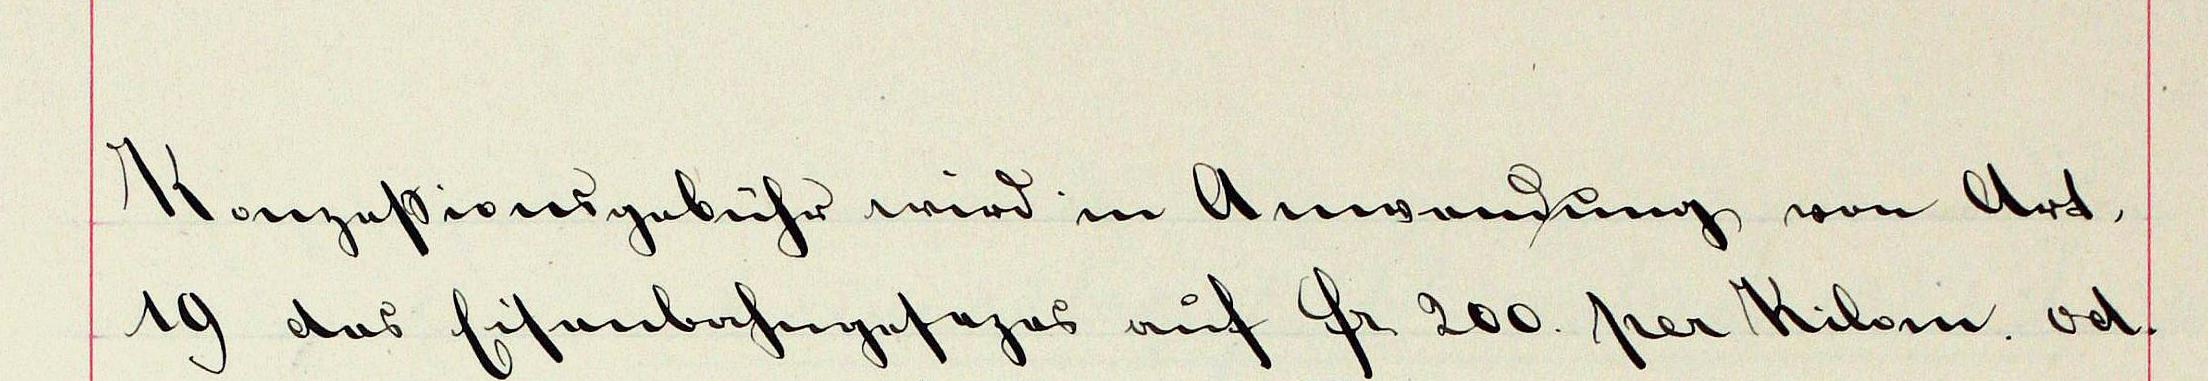 Konzeßionsgebühr wird in Anwendung von Art.
19 des Eisenbahngesezes auf Fr 200. per Kilom. od.